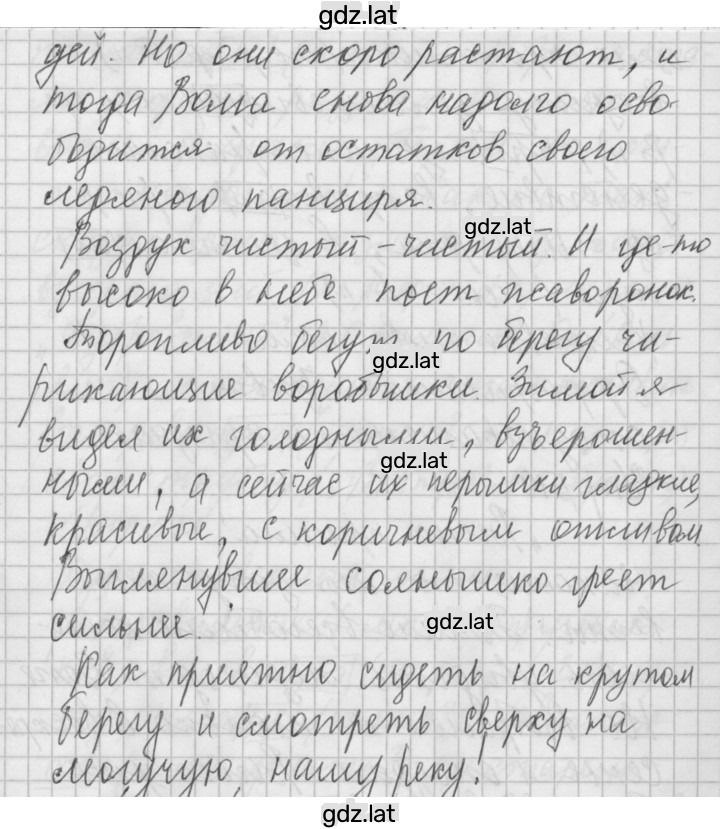 gdz.lat
дей. Но они скоро растают, и
тогда Волга снова надолго осво-
бодится от остатков своего
ледяного панциря.
gdz.lat
Воздух чистый-чистый. И где-то
высоко в небе поет жаворонок.
Торопливо бегут по берегу чи-
gdz.lat
рикающие воробьишки. Зимой я
видел их голодными, взъерошен-
gdz.lat
ными, а сейчас их перышки гладкие,
красивые, с коричневым отливом.
Выглянувшее солнышко греет
gdz.lat
сильнее.
Как приятно сидеть на крутом
берегу и смотреть сверху на
могучую нашу реку!
gdz.lat